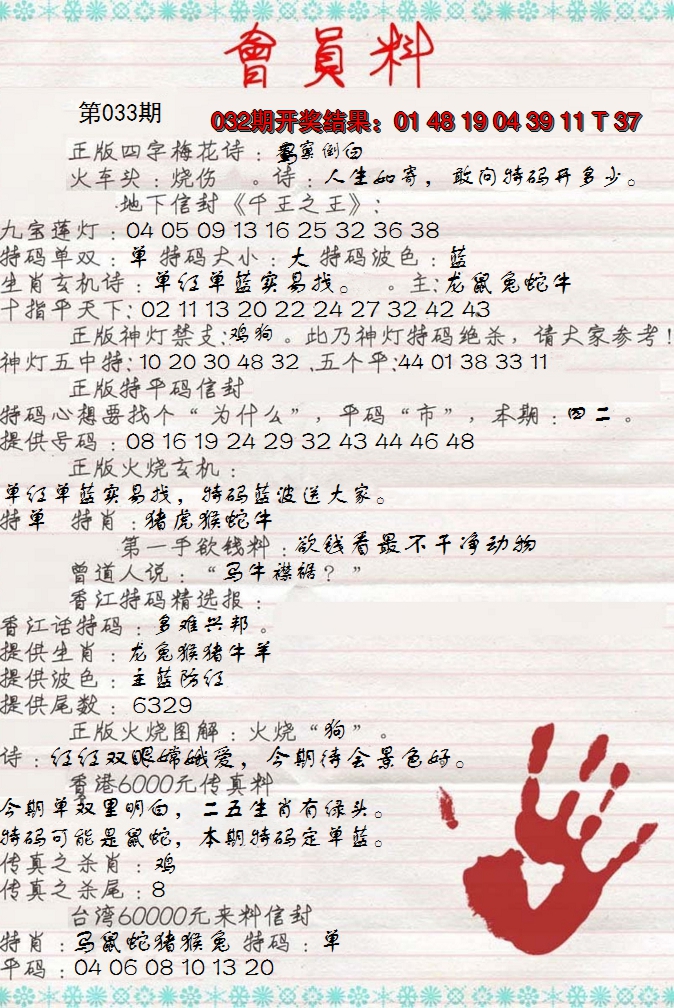 會員料
第033期
032期开奖结果：01 48 19 04 39 11 T 37
正版四字梅花诗：窝窝倒白
火车头：烧伤 。诗：人生如寄，敢问特码开多少。
地下信封《千王之王》：
九宝莲灯：04 05 09 13 16 25 32 36 38
特码单双：单 特码大小：大 特码波色：蓝
生肖玄机诗：单红单蓝实易找。 。主:龙鼠兔蛇牛
十指平天下: 02 11 13 20 22 24 27 32 42 43
正版神灯禁支:鸡狗。此乃神灯特码绝杀，请大家参考!
神灯五中特: 10 20 30 48 32 .五个平:44 01 38 33 11
正版特平码信封
特码心想要找个“为什么”，平码“市”，本期：四二。
提供号码：08 16 19 24 29 32 43 44 46 48
正版火烧玄机：
单红单蓝实易找，特码蓝波送大家。
特单 特肖：猪虎猴蛇牛
第一手欲钱料：欲钱看最不干净动物
曾道人说：“马牛襟裾？”
香江特码精选报：
香江话特码：多难兴邦。
提供生肖：龙兔猴猪牛羊
提供波色：主蓝防红
提供尾数：6329
正版火烧图解：火烧“狗”。
诗：红红双眼嫦娥爱，今期待会景色好。
香港6000元传真料
今期单双里明白，二五生肖有绿头。
特码可能是鼠蛇，本期特码定单蓝。
传真之杀肖：鸡
传真之杀尾：8
台湾60000元来料信封
特肖：马鼠蛇猪猴兔 特码：单
平码：04 06 08 10 13 20